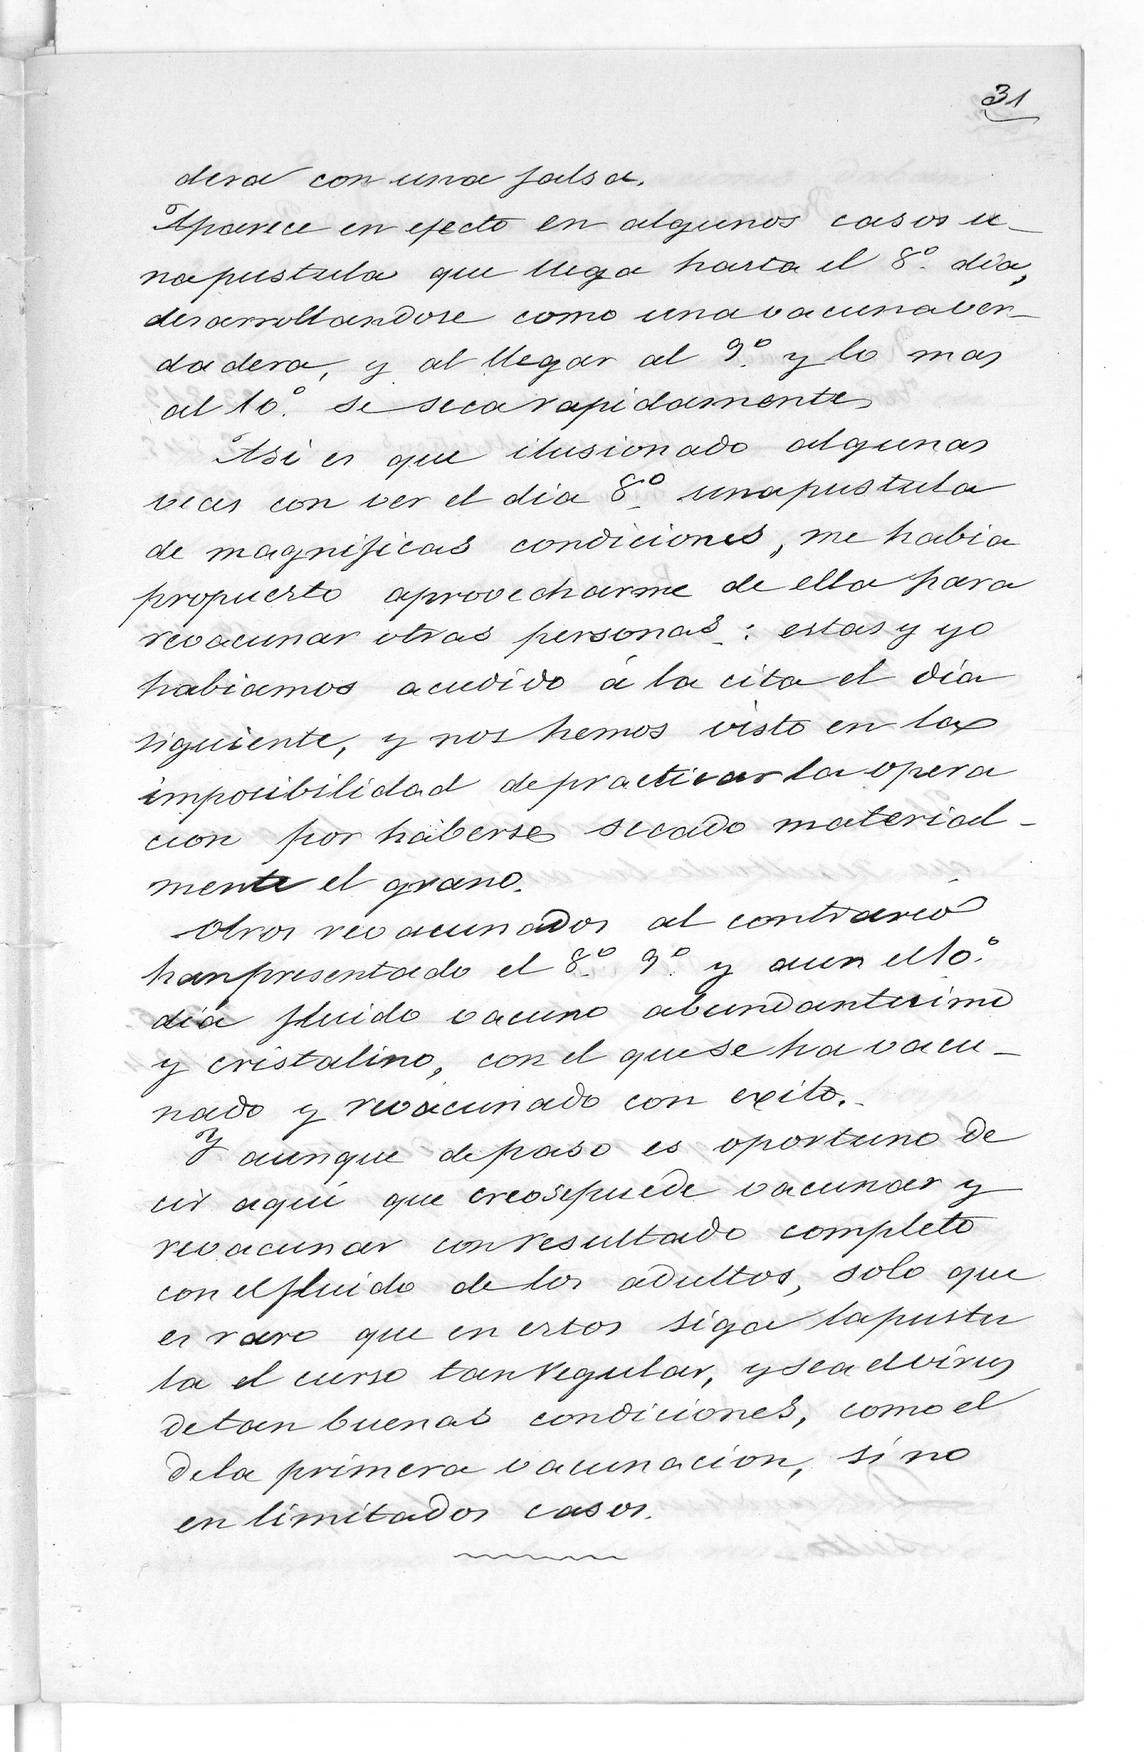 31
dera con una falsa.
Aparece en efecto en algunos casos u-
na pustula que llega hasta el 8º dia,
desarrollandose como una vacuna ver-
dadera, y al llegar al 9º y lo mas
al 10º se seca rapidamente
Asi es que ilusionado algunas
veces con ver el dia 8º una pustula
de magnificas condiciones, me habia
propuesto aprovecharme de ella para
revacunar otras personas: estas y yo
habiamos acudido á la cita el dia
siguiente, y nos hemos visto en la
imposibilidad de practicar la opera
cion por haberse secado material-
mente el grano.
Otros revacunados al contrario
han presentado el 8º 9º y aun el 10º
dia fluido vacuno abundantisimo
y cristalino, con el que se ha vacu-
nado y revacunado con exito.
Y aunque de paso es oportuno de
cir aquí que creo se puede vacunar y
revacunar con resultado completo
con el fluido de los adultos, solo que
es raro que en estos siga la pustu
la el curso tan regular, y sea el virus
de tan buenas condiciones, como el
de la primera vacunacion, si no
en limitados casos.